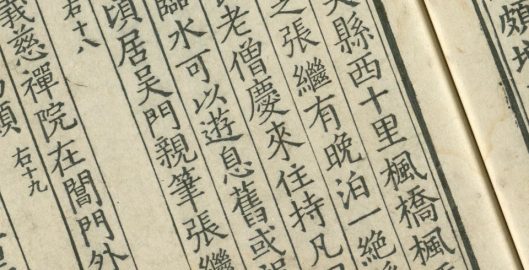 縣西十里楓橋楓
之張繼有晚泊一絕
老僧慶來住持凡
臨水可以遊息舊或
頃居吳門親筆張繼
右十八
義慈禪院在閶門外
右十九